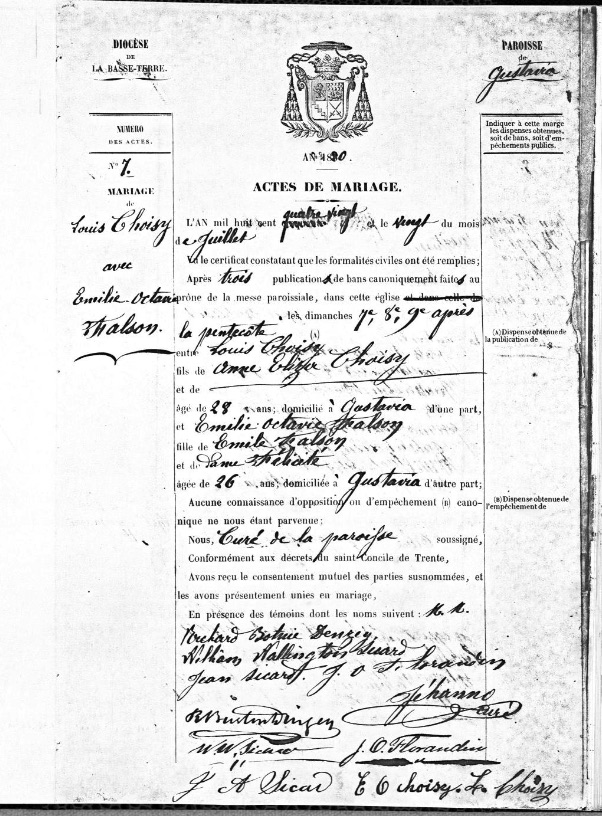 DIOCÈSE
DE
LA BASSE-TERRE.
PAROISSE
de
Gustavia
NUMERO
DES ACTES.
N° 7.
MARIAGE
de
Louis Choisy
avec
Emilie Octavie
Indiquer à cette marge
les dispenses obtenues,
soit de bans, soit d'em-
pêchements publics.
AN 1880.
ACTES DE MARIAGE.
L'AN mil huit cent quatre vingt et le vingt du mois
de Juillet
Vu le certificat constatant que les formalités civiles ont été remplies;
Après trois publications de bans canoniquement faites au
prône de la messe paroissiale, dans cette église et dans celle de
les dimanches 7e, 8e, 9e après
la pentecôte (A)
entre Louis Choisy
fils de Anne Eliza Choisy
et de
âgé de 28 ans; domicilié à Gustavia d'une part,
et Emilie Octavie
fille de Emile
et de Dame
âgée de 26 ans; domiciliée à Gustavia d'autre part;
Aucune connaissance d'opposition ou d'empêchement (B) cano-
nique ne nous étant parvenue;
Nous, Curé de la paroisse soussigné,
Conformément aux décrets du saint Concile de Trente,
Avons reçu le consentement mutuel des parties susnommées, et
les avons présentement unies en mariage,
En présence des témoins dont les noms suivent : M. M.
William Wallington Sicard
Jean Sicard. J. O. Florandin
Jéhanno
curé
W W Sicard J. O. Florandin
J A Sicard E O choisy. L. Choisy
(A) Dispense obtenue de
la publication de
(B) Dispense obtenue de
l'empêchement de